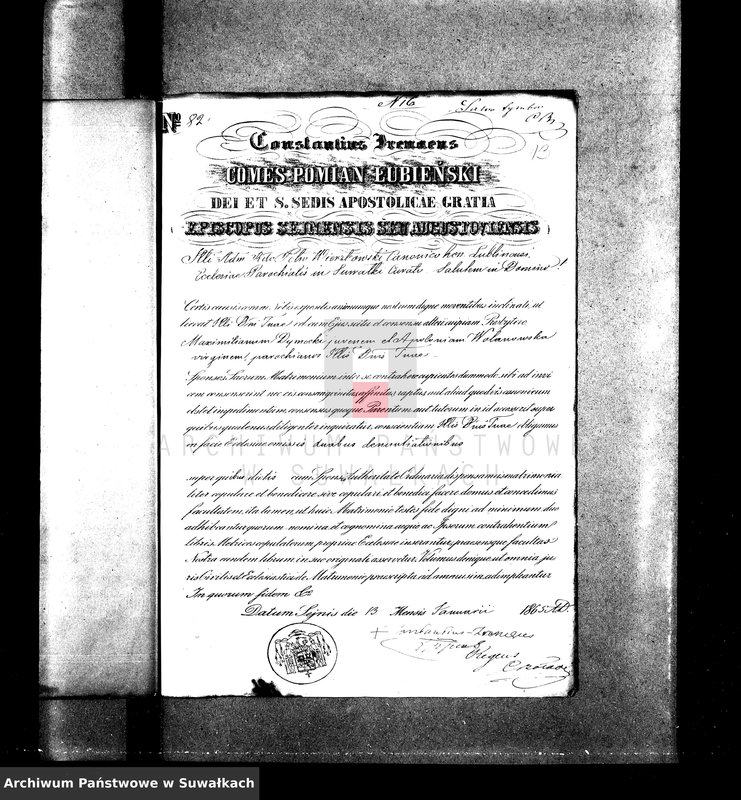 N 16
No 82
Constantius Irenaeus
COMES POMIAN ŁUBIEŃSKI
DEI ET S. SEDIS APOSTOLICAE GRATIA
EPISCOPUS SEJNENSIS SEU AUGUSTOVIENSIS
Illi Adm Rdo Canonico hon. Lublinensi
Ecclesiae Parochialis in Suwałki Curato Salutem in Domino!
Certis causis animum nostrum digne moventibus inclinati, ut
liceat Illi Dni Tuae vel cum Ejus scitu et consensu alteri cuipiam Presbytero
Maximilianum Dymecki juvenem et Apoloniam Wolanowska
virginem, parochianos Illis Dnis Tuae
Sponsos Sacrum Matrimonium inter se contrahere cupientes dummodo sibi ad invi
cem consenserint nec eis consanguinitas, affinitas, raptus aut aliud quodvis canonicum
obstet impedimentum, consensus quoque Parentum aut tutorum in id accesserit super
quibus quidem diligenter inquiratur, conscientiam Illis Dnis Tuae obligamus
in facie Ecclesiae omissis duabus denontiationibus
super quibus dictis cum Sponsis Authoritate Ordinaria dispensamus matrimonia
liter copulare et benedicere, sive copulari et benedici facere damus et concedimus
facultatem, ita tamen, ut huic Matrimonio testes fide digni ad minimum duo
adhibeantur quorum nomina et cognomina aeque ac Ipsorum contrahentium
libris Metrices copulatorum propriae Ecclesiae inserantur, praesensque facultas
Nostra eundem librum in suo originale asservetur. Volumus denique ut omnia ju
ris Civilis et Ecclesiastici de Matrimonio praescripta ad amussim adimpleantur
In quorum fidem &
Datum Sejnis die 13 Mensis Januarii 1865 AD.
+ Constantius Irenaeus
Regens
ARCHIWUM PAŃSTWOWE
W SUWAŁKACH
Archiwum Państwowe w Suwałkach